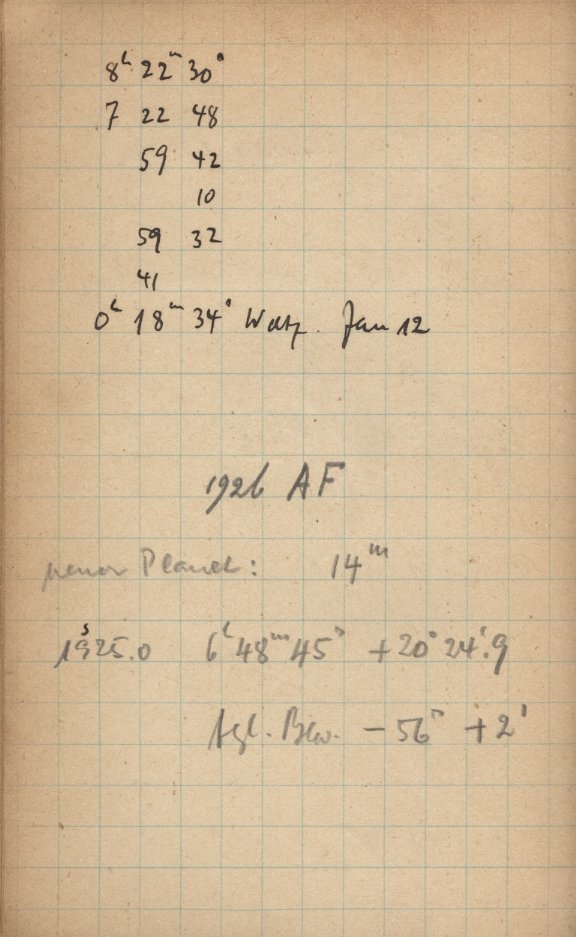 8ʰ 22ᵐ 30ˢ
7 22 48
59 42
10
59 32
41
0ʰ 18ᵐ 34ˢ Weltz. Jan 12
1926 AF
neuer Planet: 14ᵐ
1925.0 6ʰ48ᵐ45ˢ +20°24'.9
tgl. Bew. −56ˢ +2'